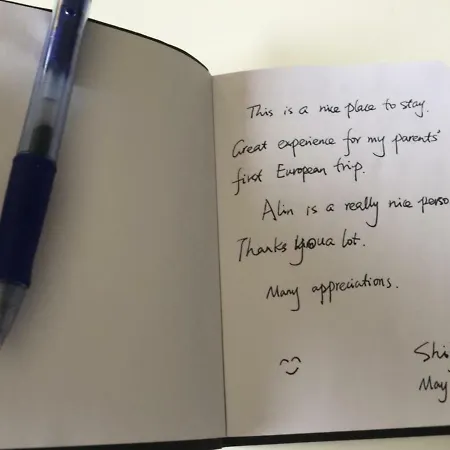 This is a nice place to stay.
Great experience for my parents'
first European trip.
Alin is a really nice perso
Thanks you a lot.
Many appreciations.
Shi
May